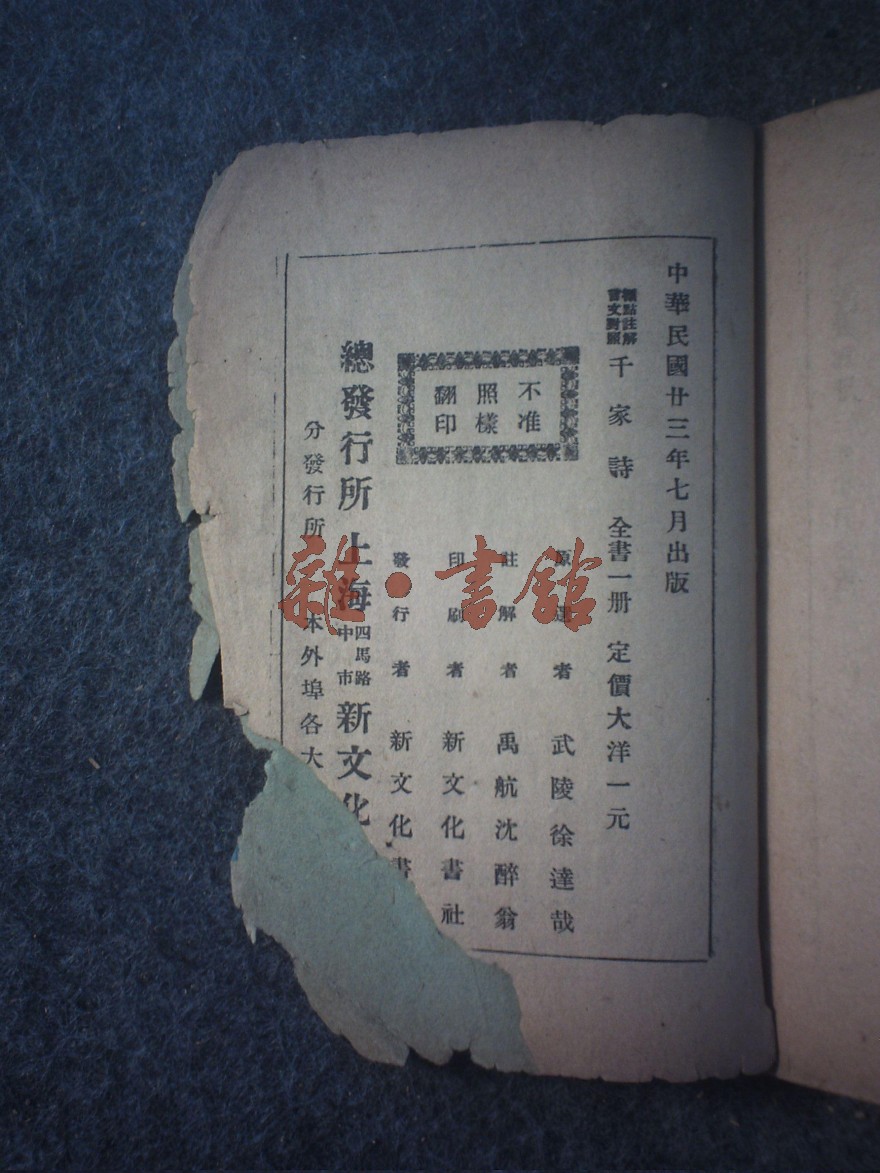 中華民國廿三年七月出版
標點註解
言文對照
千家詩 全書一册 定價大洋一元
不准
照樣
翻印
原選者 武陵徐達哉
註解者 禹航沈醉翁
印刷者 新文化書社
發行者 新文化書
總發行所 上海 四馬路中市 新文化
分發行所 本外埠各大
雜·書館